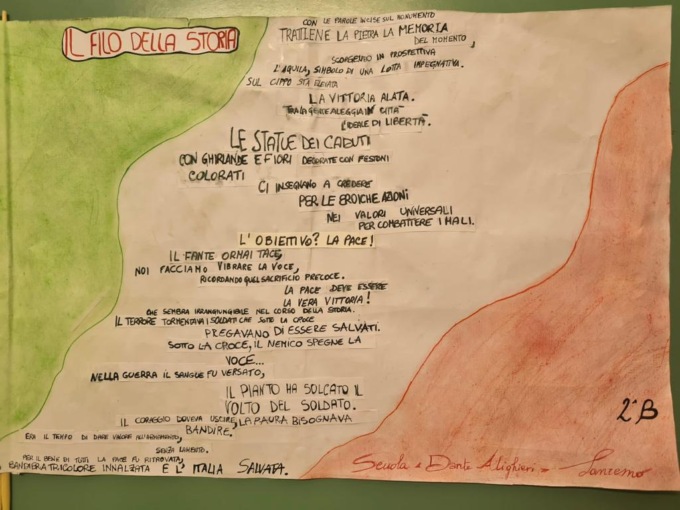 IL FILO DELLA STORIA
CON LE PAROLE INCISE SUL MONUMENTO
TRATTIENE LA PIETRA LA MEMORIA
DEL MOMENTO,
SCORGENDO IN PROSPETTIVA
L'AQUILA, SIMBOLO DI UNA LOTTA IMPEGNATIVA.
SUL CIPPO STA ELEVATA
LA VITTORIA ALATA.
TRA LA GENTE ALEGGIA IN CITTÀ
L'IDEALE DI LIBERTÀ.
LE STATUE DEI CADUTI
CON GHIRLANDE E FIORI DECORATE CON FESTONI
COLORATI
CI INSEGNANO A CREDERE
PER LE EROICHE AZIONI
NEI VALORI UNIVERSALI
PER COMBATTERE I MALI.
L'OBIETTIVO? LA PACE!
IL FANTE ORMAI TACE,
NOI FACCIAMO VIBRARE LA VOCE,
RICORDANDO QUEL SACRIFICIO PRECOCE.
LA PACE DEVE ESSERE
LA VERA VITTORIA!
CHE SEMBRA IRRANGIUNGIBILE NEL CORSO DELLA STORIA.
IL TERRORE TORMENTAVA I SOLDATI CHE SOTTO LA CROCE
PREGAVANO DI ESSERE SALVATI.
SOTTO LA CROCE, IL NEMICO SPEGNE LA
VOCE...
NELLA GUERRA IL SANGUE FU VERSATO,
IL PIANTO HA SOLCATO IL
VOLTO DEL SOLDATO.
IL CORAGGIO DOVEVA USCIRE, LA PAURA BISOGNAVA
BANDIRE.
ERA IL TEMPO DI DARE VALORE
SENZA LAMENTO.
PER IL BENE DI TUTTI LA PACE FU RITROVATA,
BANDIERA TRICOLORE INNALZATA E L'ITALIA SALVATA.
2ª B
Scuola "Dante Alighieri" - Sanremo